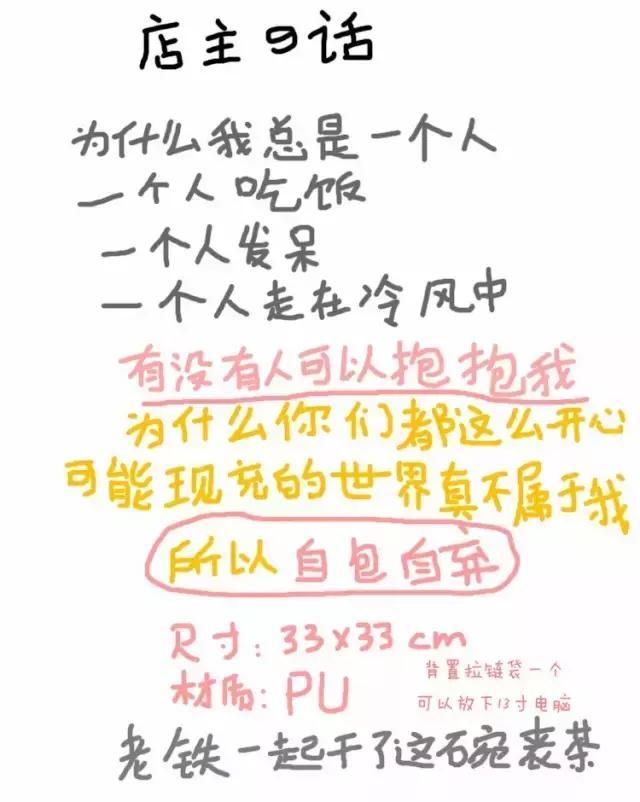 店主の话
为什么我总是一个人
一个人吃饭
一个人发呆
一个人走在冷风中
有没有人可以抱抱我
为什么你们都这么开心
可能现充的世界真不属于我
所以自包自弃
尺寸:33x33cm
材质:PU
背置拉链袋一个
可以放下13寸电脑
老铁一起干了这碗丧茶